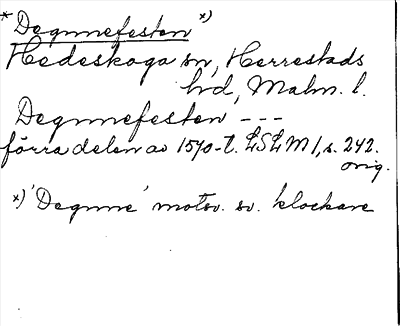 * Degnnefesten x)
Hedeskoga sn, Herrestads
hd, Malm. l.
Degnnefesten ---
förra delen av 1570-t. LSLM 1, s. 242.
orig.
x) 'Degnne' motsv. sv. klockare